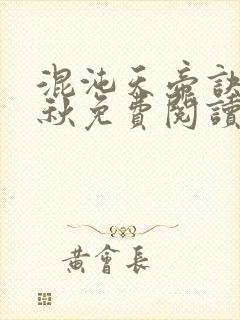 混沌天帝訣
秋免費閱讀
黃會長